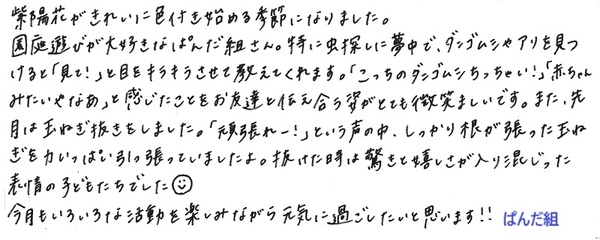 紫陽花がきれいに色付き始める季節になりました。
園庭遊びが大好きなぱんだ組さん。特に虫探しに夢中で、ダンゴムシやアリを見つ
けると「見て!」と目をキラキラさせて教えてくれます。「こっちのダンゴムシちっちゃい!」「赤ちゃん
みたいやなあ」と感じたことをお友達と伝え合う姿がとても微笑ましいです。また、先
月は玉ねぎ抜きをしました。「頑張れー!」という声の中、しっかり根が張った玉ね
ぎを力いっぱい引っ張っていましたよ。抜けた時は驚きと嬉しさが入り混じった
表情の子どもたちでした☺
今月もいろいろな活動を楽しみながら元気に過ごしたいと思います!! ぱんだ組